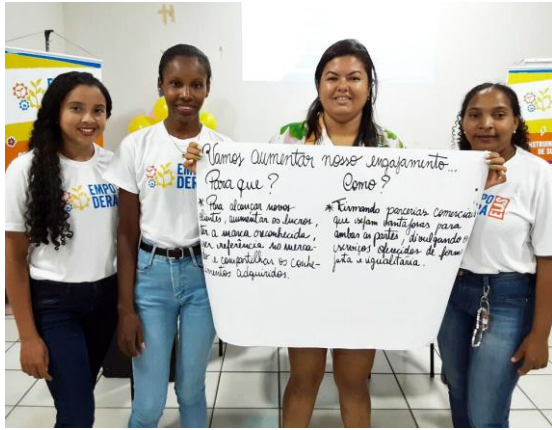 Vamos aumentar nosso engajamento...
Para que?
* Para alcançar novos
clientes, aumentar os lucros,
ter a marca reconhecida,
ser referência no merca-
do e compartilhar os conhe-
cimentos adquiridos.
Como?
* Firmando parcerias comerciais
que sejam vantajosas para
ambas as partes, divulgando os
serviços oferecidos de forma
justa e igualitária.
EMPO
DERA
EMPO
DERA
EMPO
DERA
ELAS